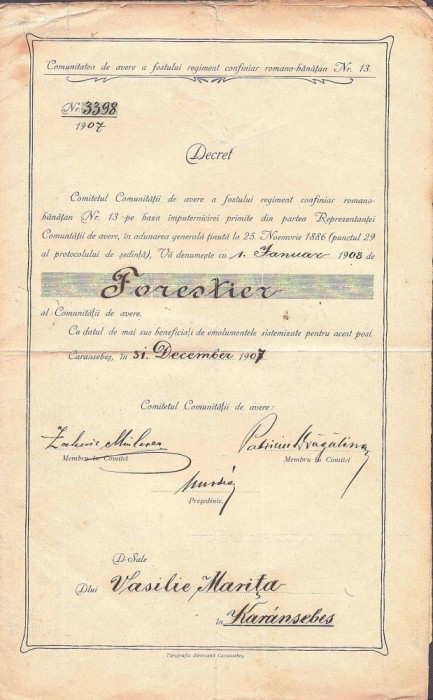 Comunitatea de avere a fostului regiment confiniar romano-bănățan Nr. 13.
Nr. 3398
1907
Decret
Comitetul Comunității de avere a fostului regiment confiniar romano-
bănățan Nr. 13 pe baza împuternicirei primite din partea Reprezentanței
Comunității de avere, în adunarea generală ținută la 25. Noemvrie 1886 (punctul 29
al protocolului de ședință), Vă denumește cu 1. Januar 1908 de
Forestier
al Comunității de avere.
Cu datul de mai sus beneficiați de emolumentele sistemizate pentru acest post.
Caransebeș, în 31. December 1907
Comitetul Comunității de avere:
Patriciu Drăgălina
Membru în Comitet
Membru în Comitet
Președinte.
D-Sale
Dlui Vasilie Marița
în Karánsebes
Tipografia diecezană Caransebeș.